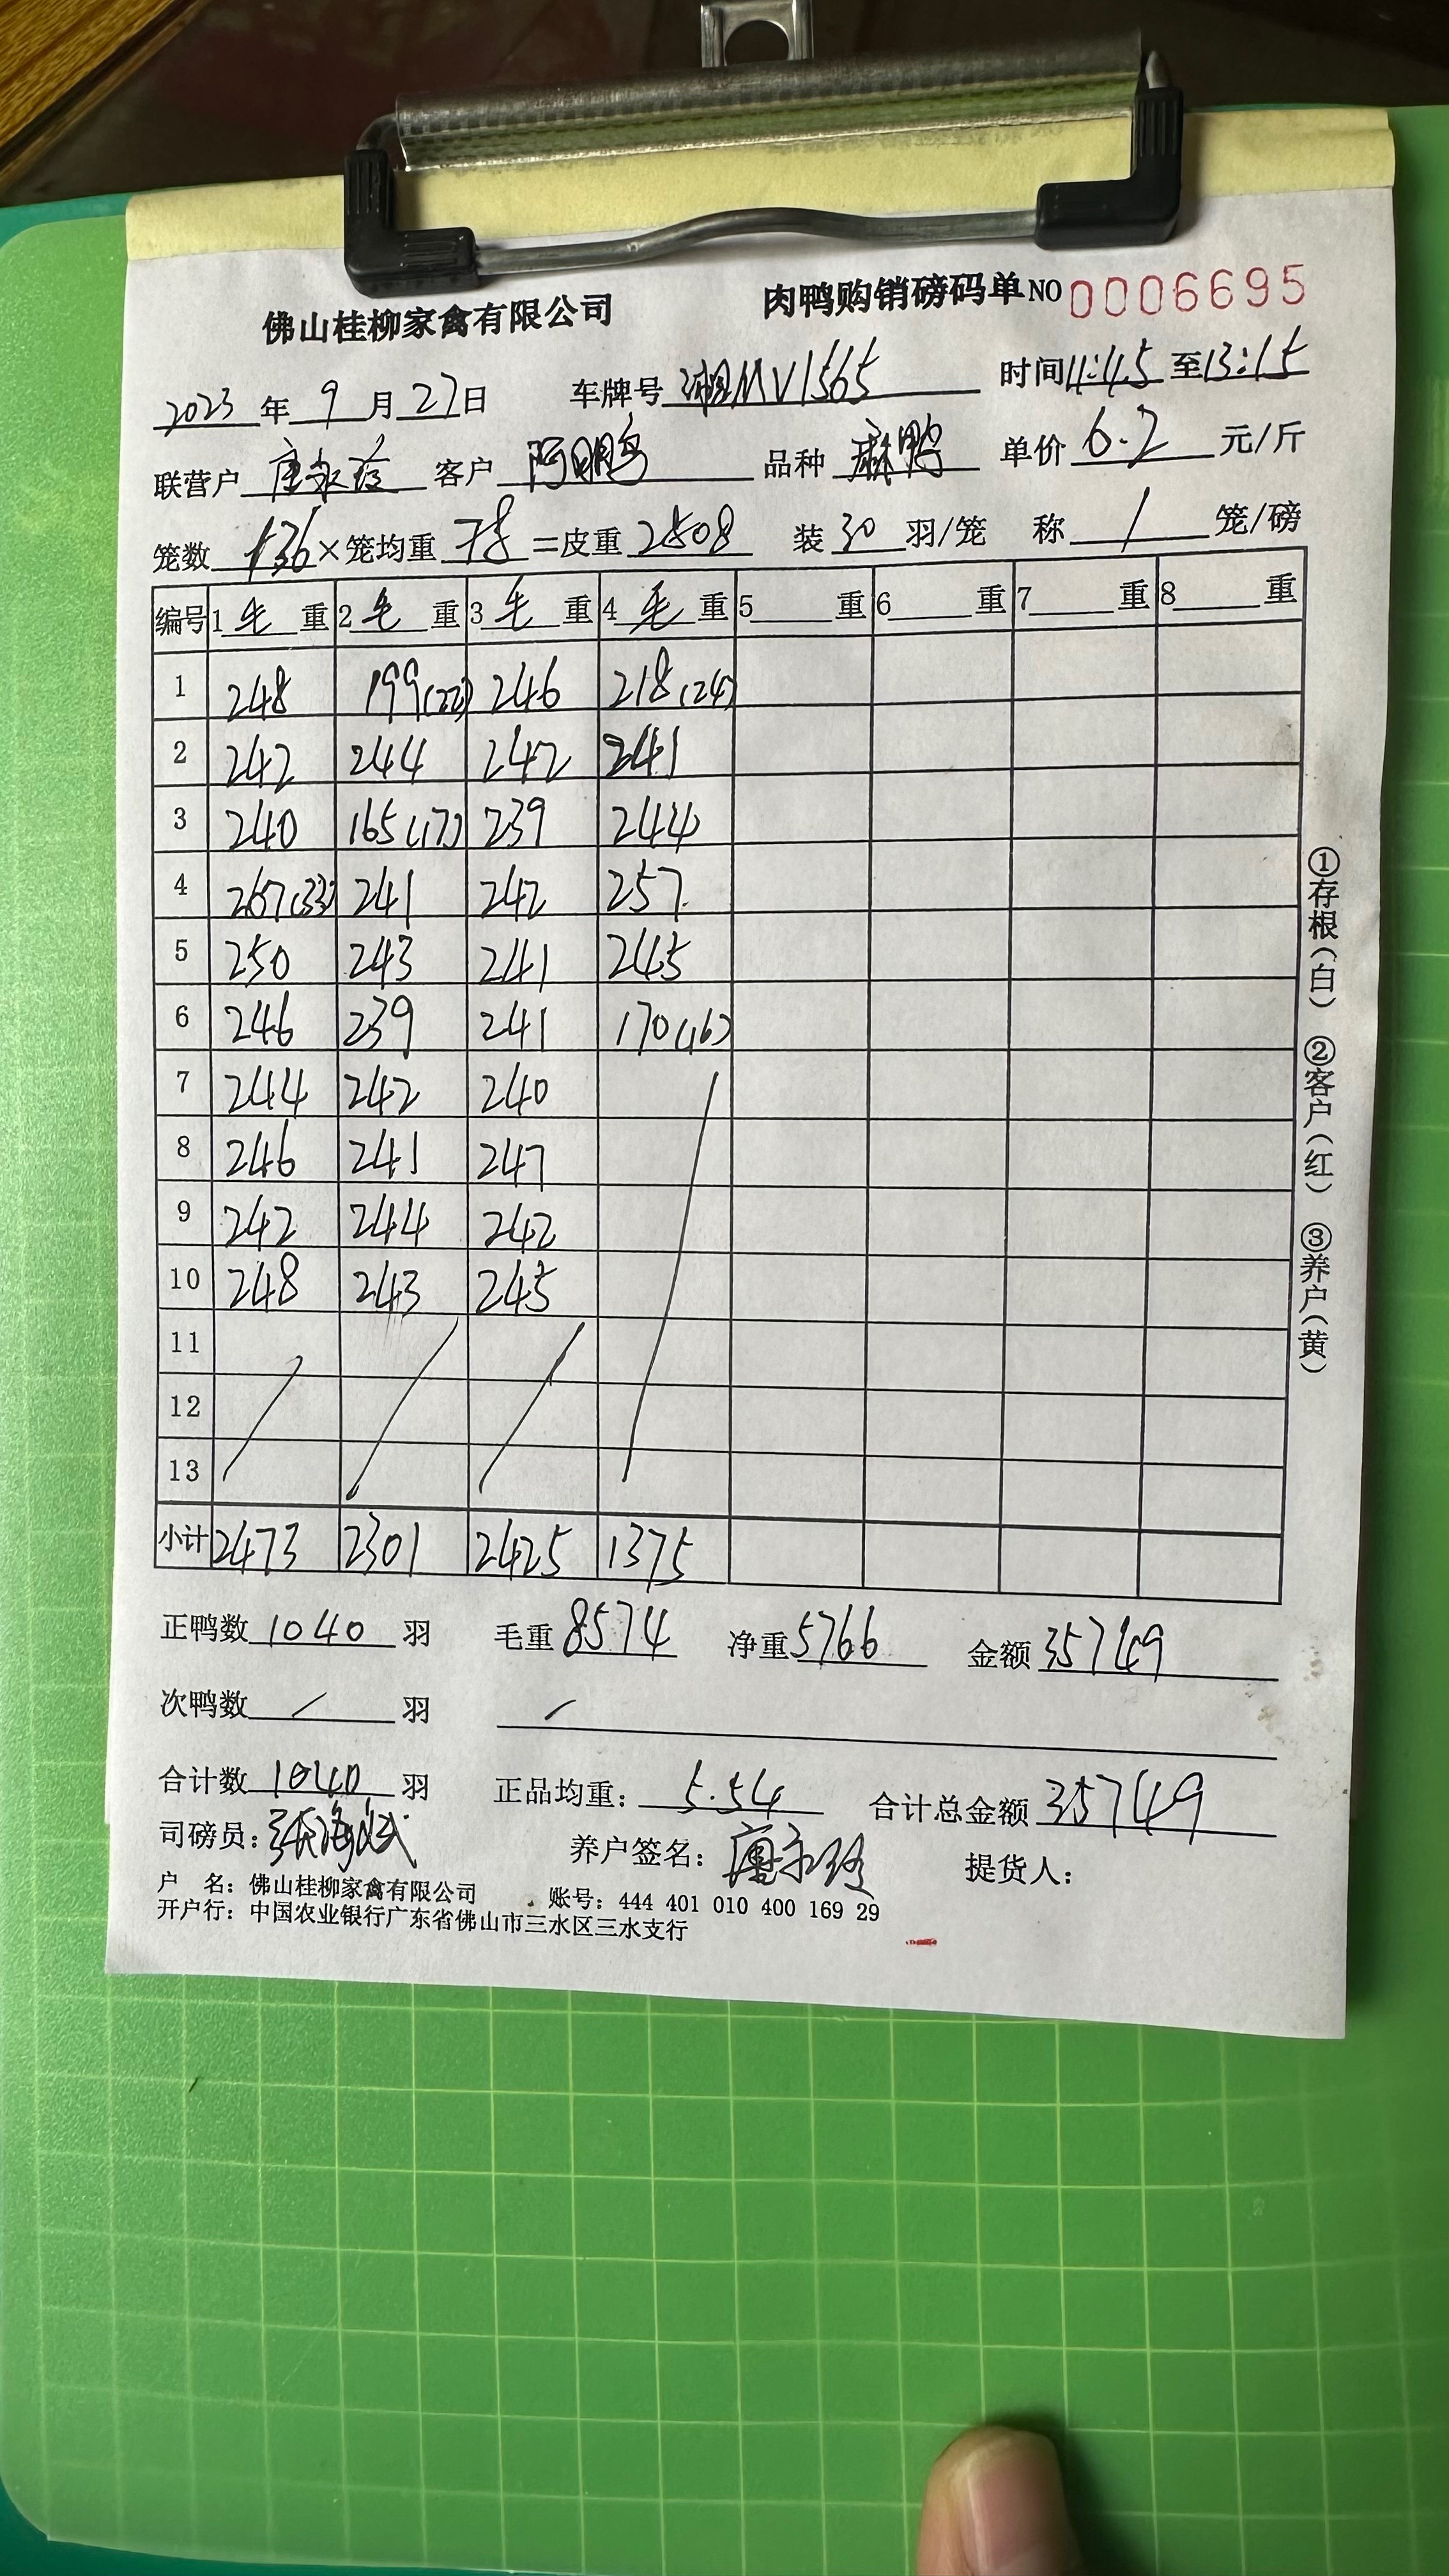 佛山桂柳家禽有限公司 肉鸭购销磅码单 NO 0006695
2023 年 9 月 27 日 车牌号 湘MV1565 时间 11:45 至 13:15
联营户 客户 阿鹏 品种 麻鸭 单价 6.2 元/斤
笼数 36 × 笼均重 78 = 皮重 2808 装 30 羽/笼 称 1 笼/磅
编号 1 毛 重 2 毛 重 3 毛 重 4 毛 重 5 重 6 重 7 重 8 重
1 248 199(22) 246 218(24)
2 242 244 242 241
3 240 165(17) 239 244
4 267(33) 241 242 257
5 250 243 241 245
6 246 239 241 170(16)
7 244 242 240
8 246 241 247
9 242 244 242
10 248 243 245
11
12
13
小计 2473 2301 2425 1375
正鸭数 1040 羽 毛重 8574 净重 5766 金额 35749
次鸭数 / 羽 /
合计数 1040 羽 正品均重: 5.54 合计总金额 35749
司磅员: 养户签名: 提货人:
户 名: 佛山桂柳家禽有限公司 账号: 444 401 010 400 169 29
开户行: 中国农业银行广东省佛山市三水区三水支行
①存根(白) ②客户(红) ③养户(黄)